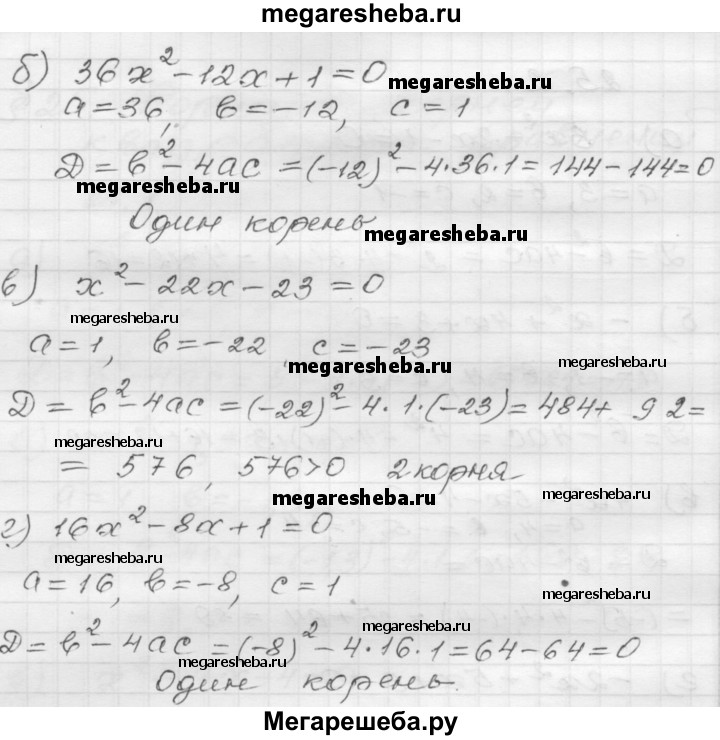 megaresheba.ru
б) 36x² - 12x + 1 = 0
megaresheba.ru
a = 36, в = -12, c = 1
Д = в² - 4ac = (-12)² - 4·36·1 = 144 - 144 = 0
megaresheba.ru
Один корень
megaresheba.ru
в) x² - 22x - 23 = 0
megaresheba.ru
a = 1, в = -22 c = -23
megaresheba.ru
megaresheba.ru
Д = в² - 4ac = (-22)² - 4·1·(-23) = 484 + 92 =
megaresheba.ru
= 576, 576>0 2 корня
megaresheba.ru
megaresheba.ru
г) 16x² - 8x + 1 = 0
megaresheba.ru
a = 16, в = -8, c = 1
megaresheba.ru
megaresheba.ru
Д = в² - 4ac = (-8)² - 4·16·1 = 64 - 64 = 0
megaresheba.ru
Один корень.
Мегарешеба.ру